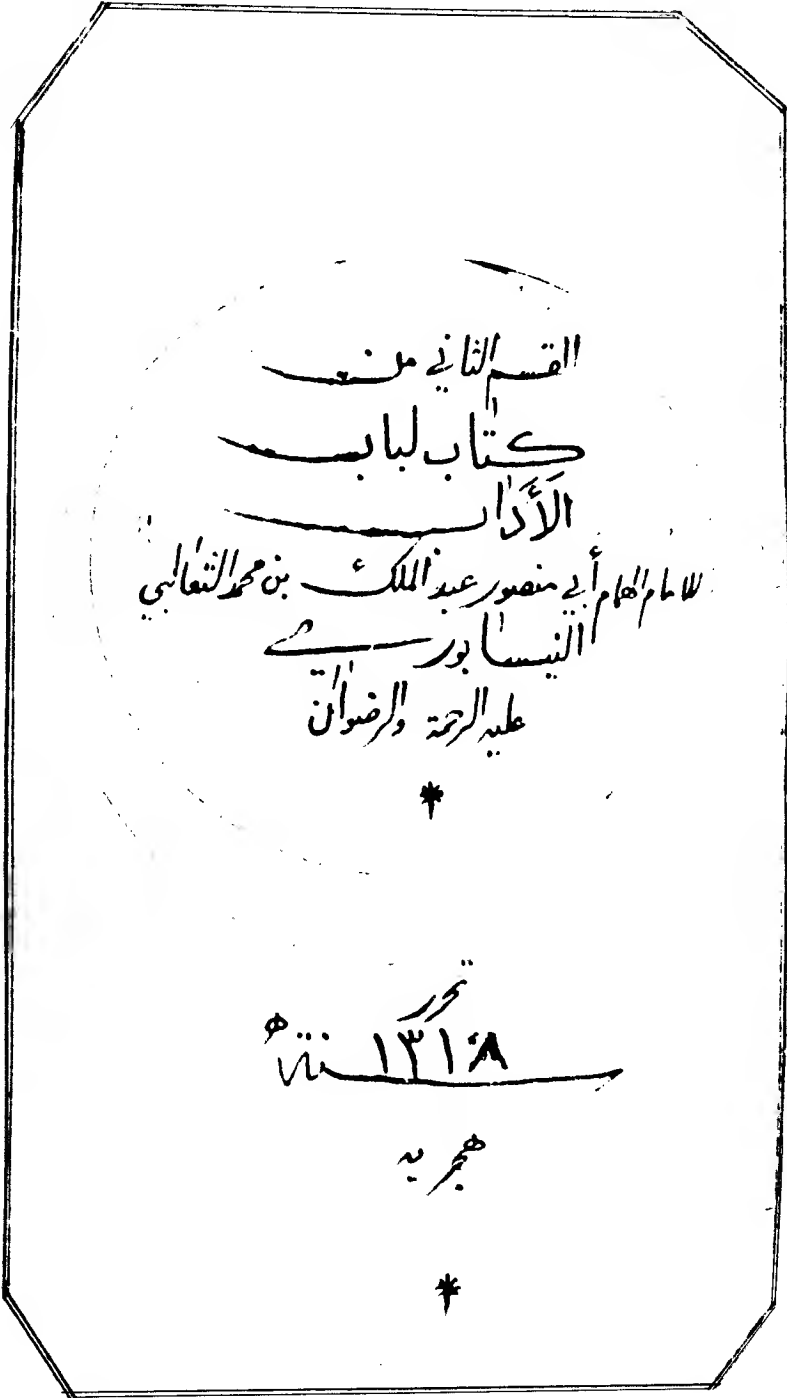 القسم الثاني من
كتاب لباب
الأَدَاب
للامام الهمام أبي منصور عبد الملك بن محمد الثعالبي
النيسابوري
عليه الرحمة والرضوان
تحرر
سنة ١٣١٨ ه
هجريه